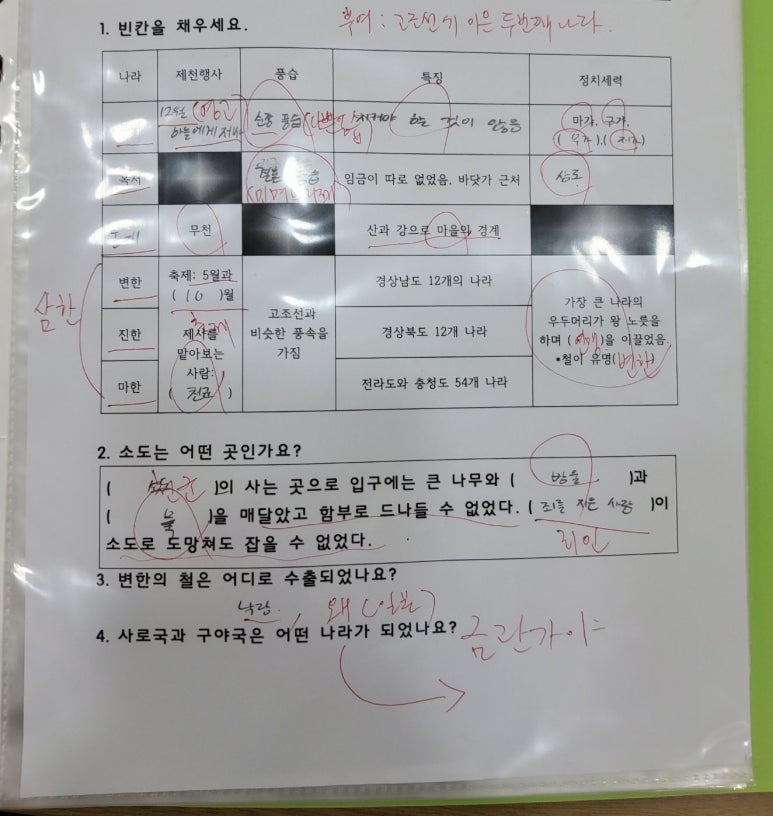 부여 : 고조선에 이은 두번째 나라.
1. 빈칸을 채우세요.
나라 제천행사 풍습 특징 정치세력
12월 (영고)
하늘에게 제사
순장 풍습
것이 않음
마가, 구가,
( 우가 ),( 저가 )
옥저
(민며느리제)
임금이 따로 없었음. 바닷가 근처
삼로
동예
무천
산과 강으로 마을의 경계
삼한
변한
진한
마한
축제: 5월과
( 10 )월
제사를
맡아보는
사람:
( 천군 )
고조선과
비슷한 풍속을
가짐
경상남도 12개의 나라
경상북도 12개 나라
전라도와 충청도 54개 나라
가장 큰 나라의
우두머리가 왕 노릇을
하며 (연맹)을 이끌었음.
*철이 유명(변한)
2. 소도는 어떤 곳인가요?
( 천군 )의 사는 곳으로 입구에는 큰 나무와 ( 방울 )과
( 북 )을 매달았고 함부로 드나들 수 없었다. ( 죄를 지은 사람 )이
죄인
소도로 도망쳐도 잡을 수 없었다.
3. 변한의 철은 어디로 수출되었나요?
낙랑, 왜 (일본)
4. 사로국과 구야국은 어떤 나라가 되었나요? 금관가야